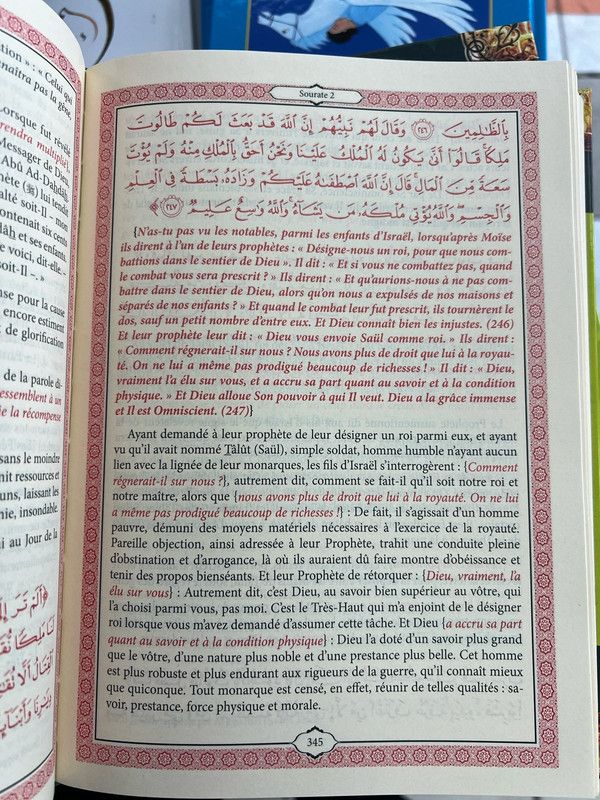 Sourate 2
بِٱلظَّٰلِمِينَ ﴿٢٤٦﴾ وَقَالَ لَهُمْ نَبِيُّهُمْ إِنَّ ٱللَّهَ قَدْ بَعَثَ لَكُمْ طَالُوتَ
مَلِكًا قَالُوٓا۟ أَنَّىٰ يَكُونُ لَهُ ٱلْمُلْكُ عَلَيْنَا وَنَحْنُ أَحَقُّ بِٱلْمُلْكِ مِنْهُ وَلَمْ يُؤْتَ
سَعَةً مِّنَ ٱلْمَالِ قَالَ إِنَّ ٱللَّهَ ٱصْطَفَىٰهُ عَلَيْكُمْ وَزَادَهُۥ بَسْطَةً فِى ٱلْعِلْمِ
وَٱلْجِسْمِ وَٱللَّهُ يُؤْتِى مُلْكَهُۥ مَن يَشَآءُ وَٱللَّهُ وَٰسِعٌ عَلِيمٌ ﴿٢٤٧﴾
{N'as-tu pas vu les notables, parmi les enfants d'Israël, lorsqu'après Moïse
ils dirent à l'un de leurs prophètes : « Désigne-nous un roi, pour que nous com-
battions dans le sentier de Dieu ». Il dit : « Et si vous ne combattez pas, quand
le combat vous sera prescrit ? » Ils dirent : « Et qu'aurions-nous à ne pas com-
battre dans le sentier de Dieu, alors qu'on nous a expulsés de nos maisons et
séparés de nos enfants ? » Et quand le combat leur fut prescrit, ils tournèrent le
dos, sauf un petit nombre d'entre eux. Et Dieu connaît bien les injustes. (246)
Et leur prophète leur dit : « Dieu vous envoie Saül comme roi. » Ils dirent :
« Comment régnerait-il sur nous ? Nous avons plus de droit que lui à la royau-
té. On ne lui a même pas prodigué beaucoup de richesses ! » Il dit : « Dieu,
vraiment l'a élu sur vous, et a accru sa part quant au savoir et à la condition
physique. » Et Dieu alloue Son pouvoir à qui Il veut. Dieu a la grâce immense
et Il est Omniscient. (247)}
Ayant demandé à leur prophète de leur désigner un roi parmi eux, et ayant
vu qu'il avait nommé Ṭâlût (Saül), simple soldat, homme humble n'ayant aucun
lien avec la lignée de leur monarques, les fils d'Israël s'interrogèrent : {Comment
régnerait-il sur nous ?}, autrement dit, comment se fait-il qu'il soit notre roi et
notre maître, alors que {nous avons plus de droit que lui à la royauté. On ne lui
a même pas prodigué beaucoup de richesses !} : De fait, il s'agissait d'un homme
pauvre, démuni des moyens matériels nécessaires à l'exercice de la royauté.
Pareille objection, ainsi adressée à leur Prophète, trahit une conduite pleine
d'obstination et d'arrogance, là où ils auraient dû faire montre d'obéissance et
tenir des propos bienséants. Et leur Prophète de rétorquer : {Dieu, vraiment, l'a
élu sur vous} : Autrement dit, c'est Dieu, au savoir bien supérieur au vôtre, qui
l'a choisi parmi vous, pas moi. C'est le Très-Haut qui m'a enjoint de le désigner
roi lorsque vous m'avez demandé d'assumer cette tâche. Et Dieu {a accru sa part
quant au savoir et à la condition physique} : Dieu l'a doté d'un savoir plus grand
que le vôtre, d'une nature plus noble et d'une prestance plus belle. Cet homme
est plus robuste et plus endurant aux rigueurs de la guerre, qu'il connaît mieux
que quiconque. Tout monarque est censé, en effet, réunir de telles qualités : sa-
voir, prestance, force physique et morale.
345